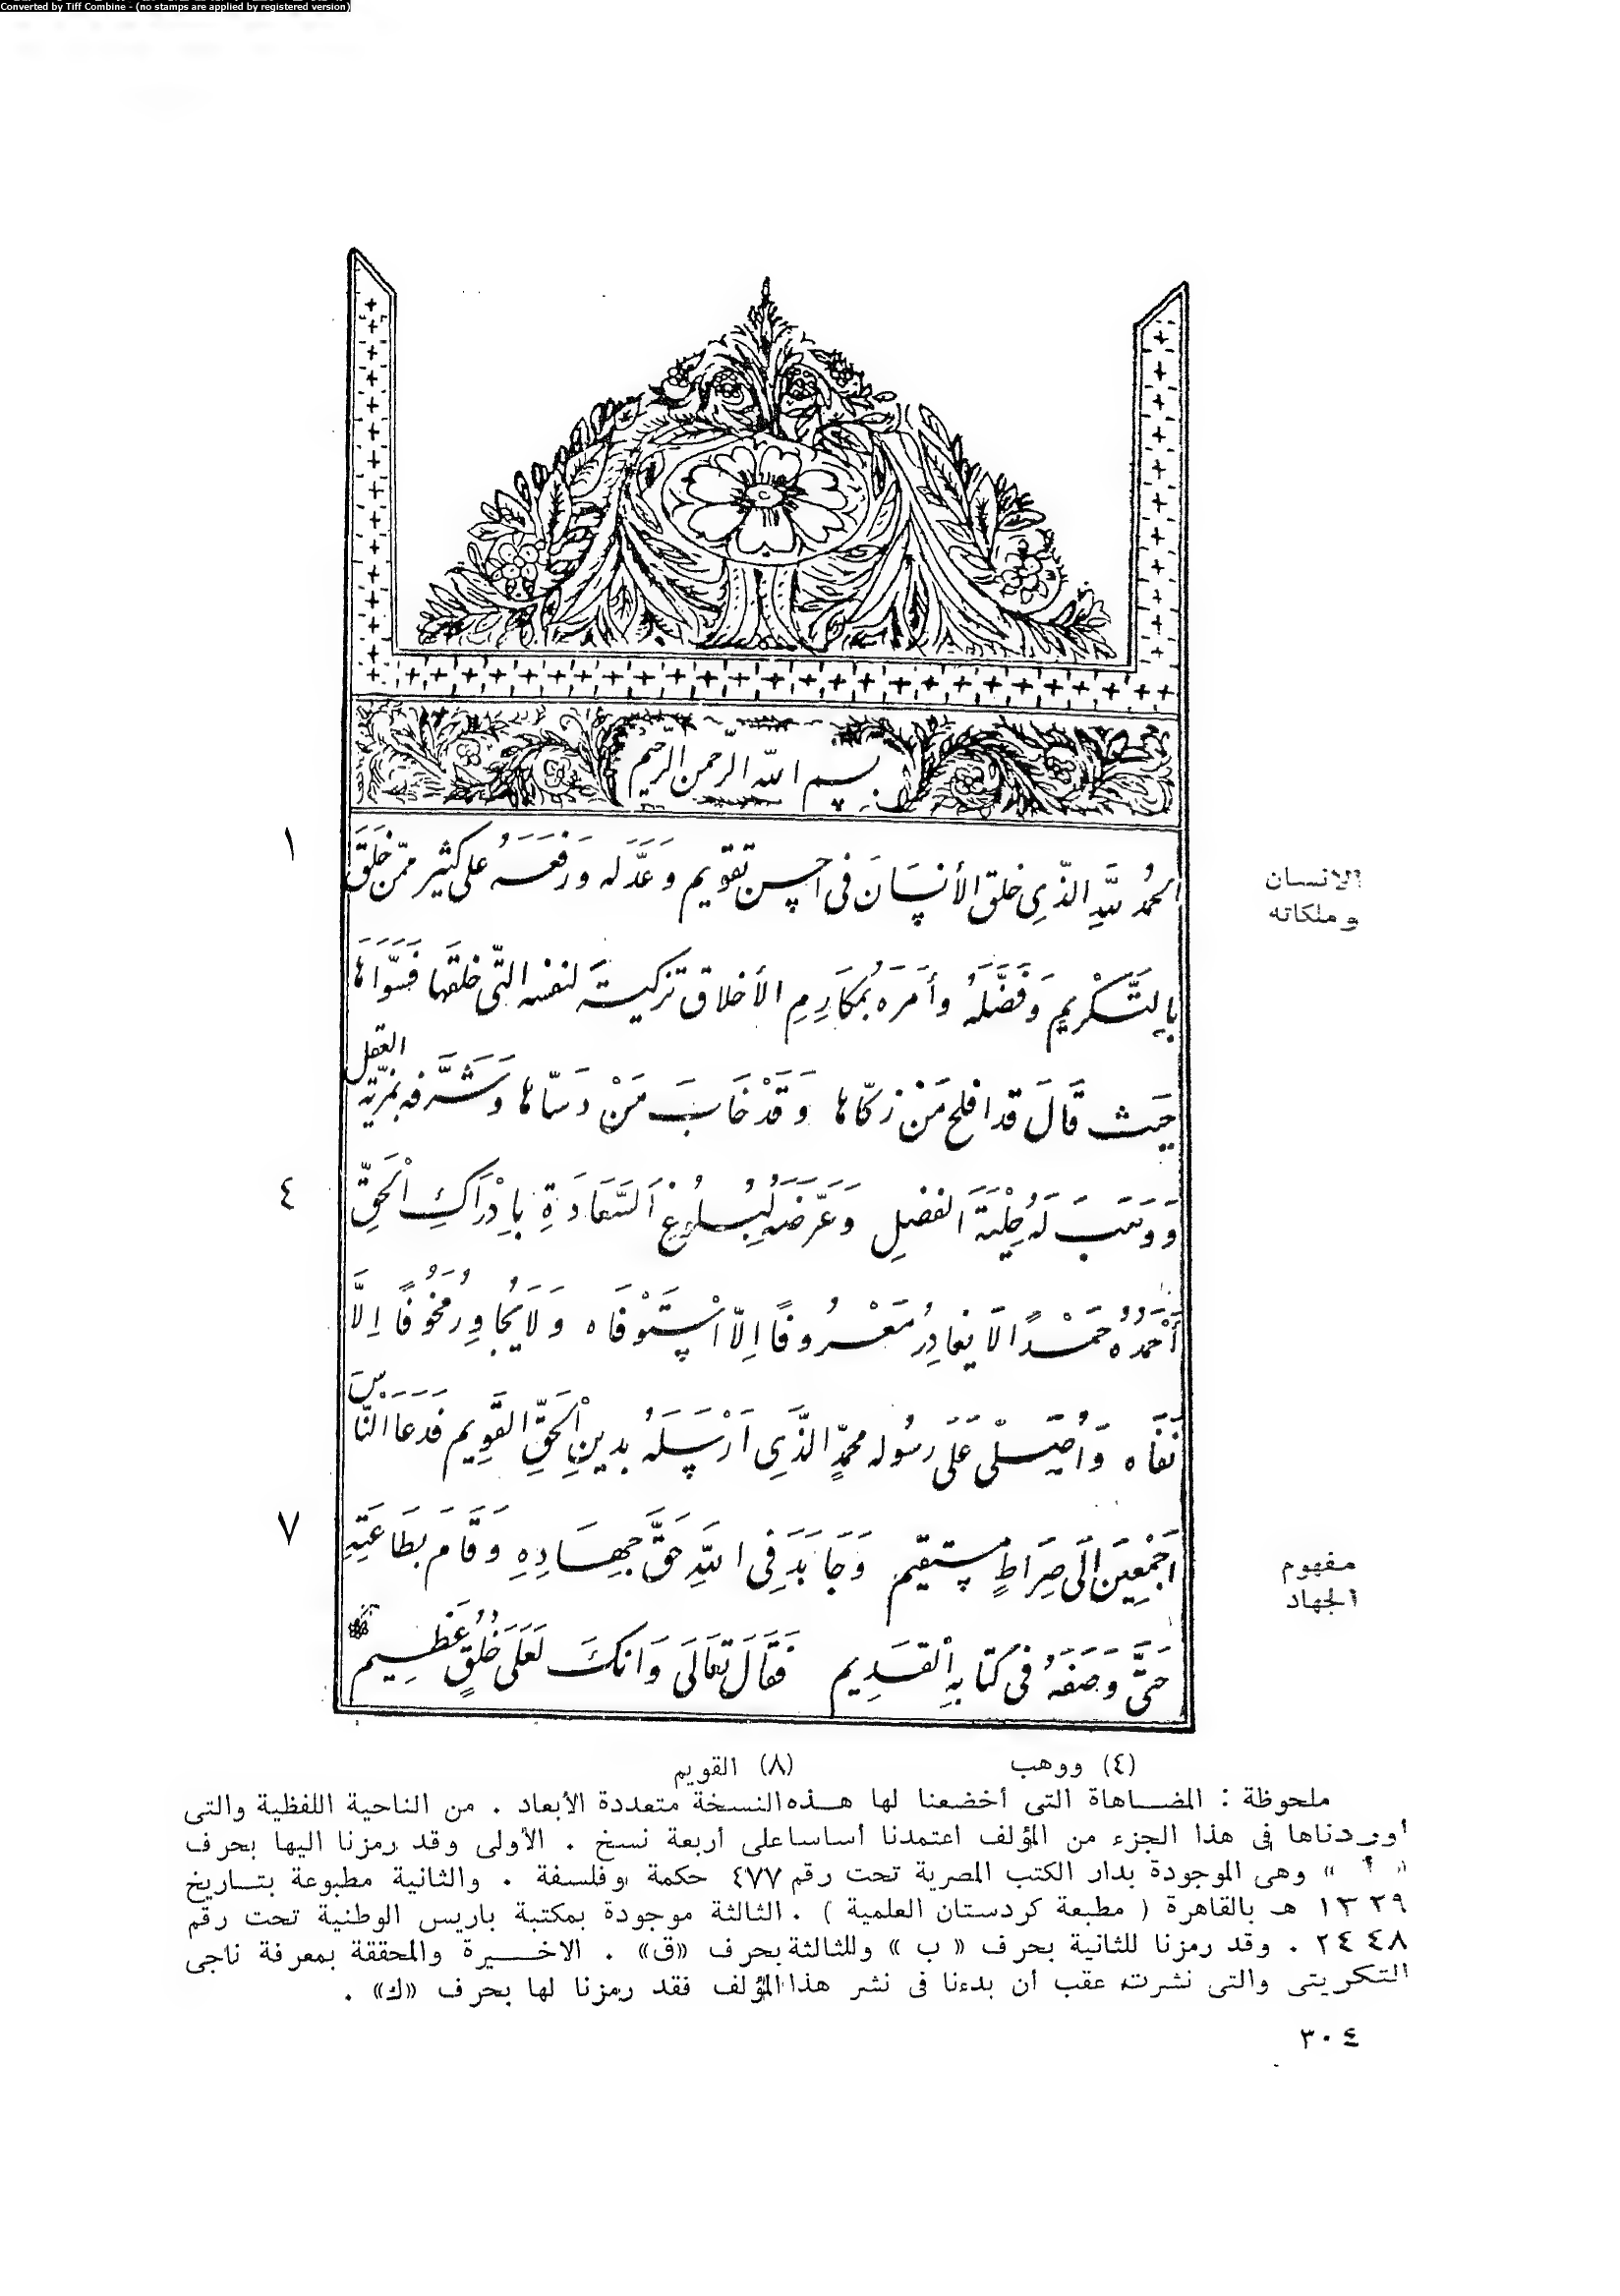 Converted by Tiff Combine - (no stamps are applied by registered version)
بسم الله الرحمن الرحيم
١
الحمدُ للَّهِ الذّى خلق الأنسَان فى احسن تقويم وَعَدَّله وَرَفعَـهُ على كثير ممّن خَلَقَ
الانسان
وملكاته
بِالتَّكْرِيمِ وَفَضَّلَهُ وأمَرَه بمُكَارِمِ الأخلاق تزكيـةً لنفسه التّى خلقَها فَسَوَّاهَا
حَيث قَالَ قد افلح مَنْ زكّاها وَقَدْ خَابَ مَنْ دَسّاهَا وَشَرَّفه بمَزِيّة العقل
٤
وَوَهَبَ لَهُ حِلْيَةَ الفضلِ وَعَرَّضَهُ لِبُلوغِ السَّعَادَةِ بِاِدْرَاكِ الْحَقِّ
أَحْمَدُهُ حَمْداً لَا يغادِرُ مَعْرُوفًا اِلّا اسْتَوْفَاه وَلَا يُجَاوِرُ مَخُوفًا اِلَّا
نَفَاه وَاُصَلّى عَلَى رسُوله محمّدٍ الَّذِى اَرْسَلَهُ بدينِ الْحَقِّ القَوِيم فَدَعَا النّاسَ
٧
اَجْمَعِينَ اِلَى صِرَاطٍ مستقيم وَجَاهَدَ فِى اللَّهِ حَقَّ جِهَادِهِ وَقَامَ بطَاعَتِهِ
مفهوم
الجهاد
حَتَّى وَصَفَهُ فى كتَابهِ الْقَدِيم فَقَالَ تعَالَى وَانكَ لَعَلَى خُلُقٍ عَظِيم
(٤) ووهب (٨) القويم
ملحوظة : المضاهاة التى أخضعنا لها هذه النسخة متعددة الأبعاد . من الناحية اللفظية والتى
أوردناها فى هذا الجزء من المؤلف اعتمدنا أساسا على أربعة نسخ . الأولى وقد رمزنا اليها بحرف
« أ » وهى الموجودة بدار الكتب المصرية تحت رقم ٤٧٧ حكمة وفلسفة . والثانية مطبوعة بتاريخ
١٣٢٩ هـ بالقاهرة ( مطبعة كردستان العلمية ) . الثالثة موجودة بمكتبة باريس الوطنية تحت رقم
٢٤٤٨ . وقد رمزنا للثانية بحرف « ب » وللثالثة بحرف «ق» . الاخيرة والمحققة بمعرفة ناجى
التكريتى والتى نشرت عقب أن بدءنا فى نشر هذا المؤلف فقد رمزنا لها بحرف «ك» .
٣٠٤